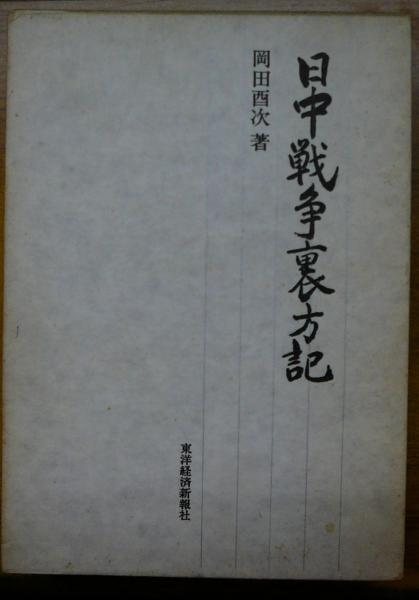 日中戦争裏方記
岡田酉次 著
東洋経済新報社